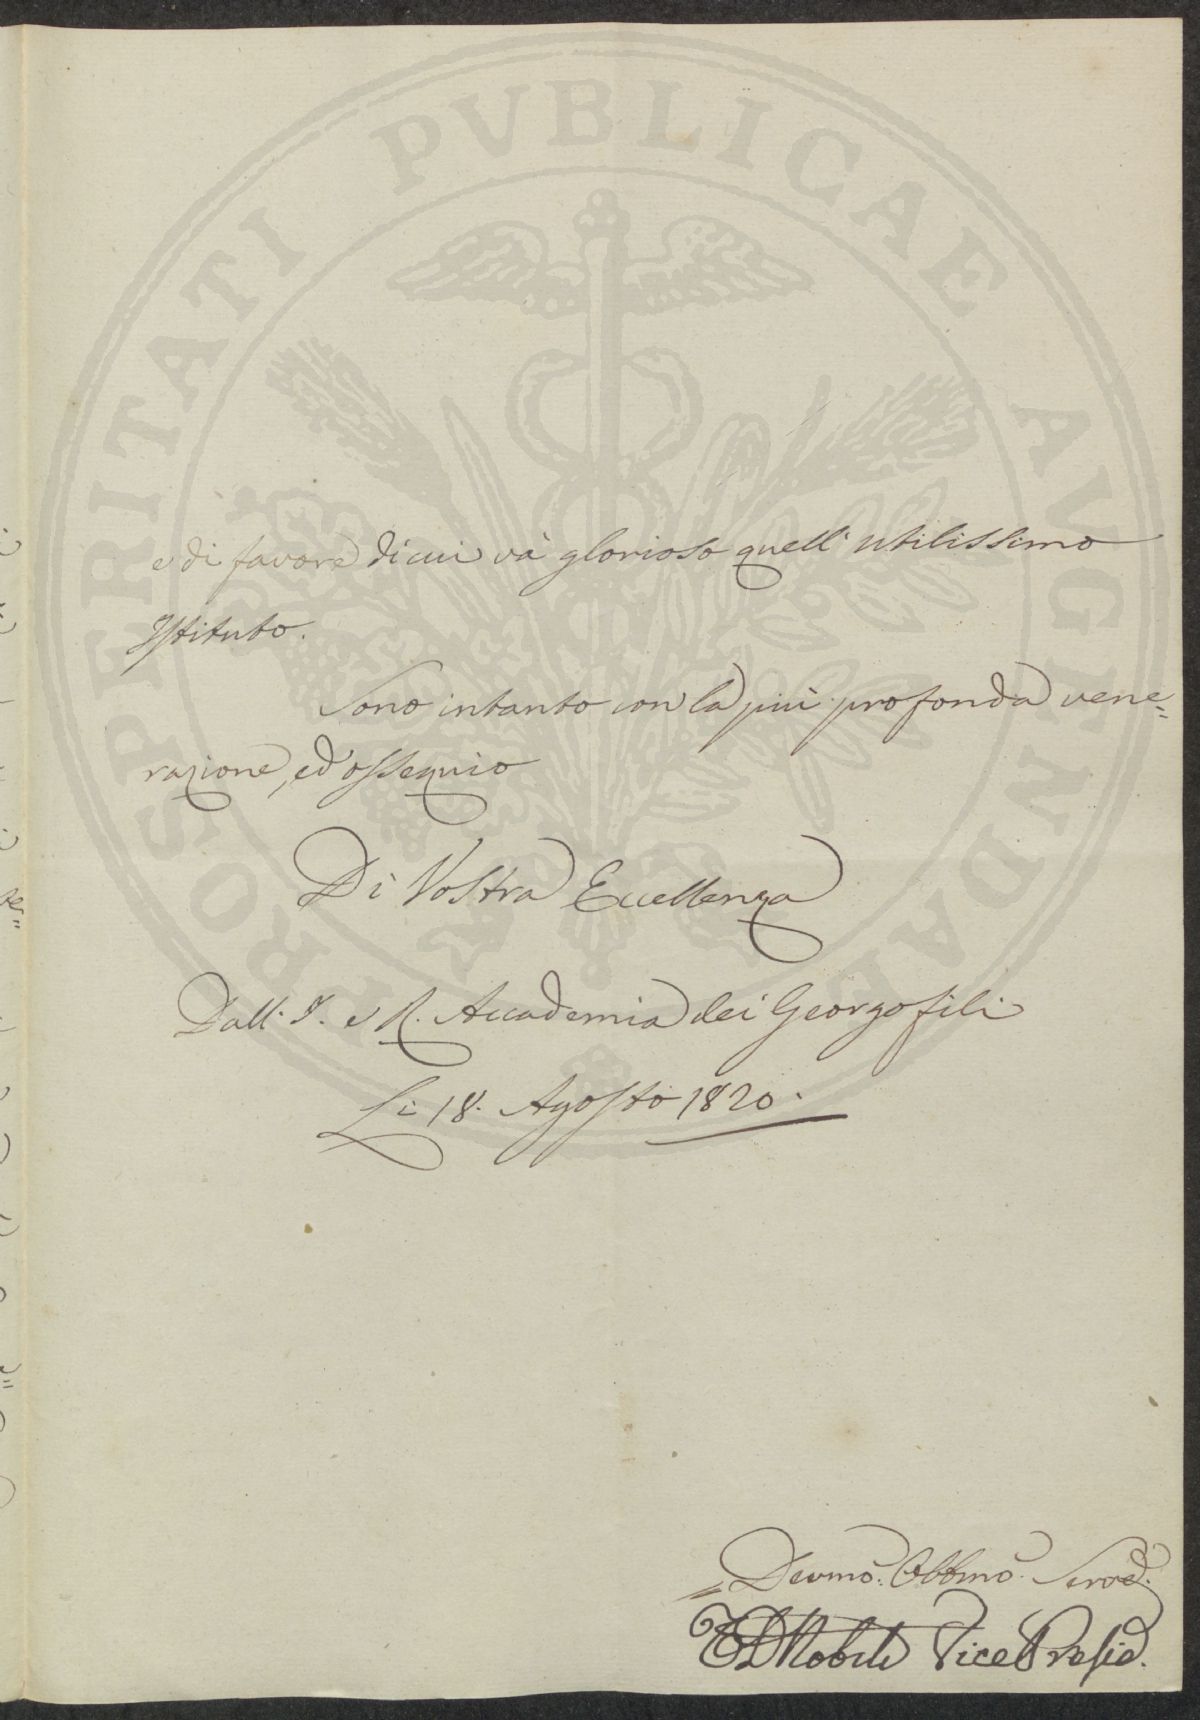 PROSPERITATI PVBLICAE AVGENDAE
e di favore di cui và glorioso quell' utilissimo
Istituto.
Sono intanto con la più profonda vene=
razione, ed ossequio
Di Vostra Eccellenza
Dall. I. e R. Accademia dei Georgofili
Li 18. Agosto 1820.
Devmo: Obbmo. Servd:
Nobili Vice Presid.